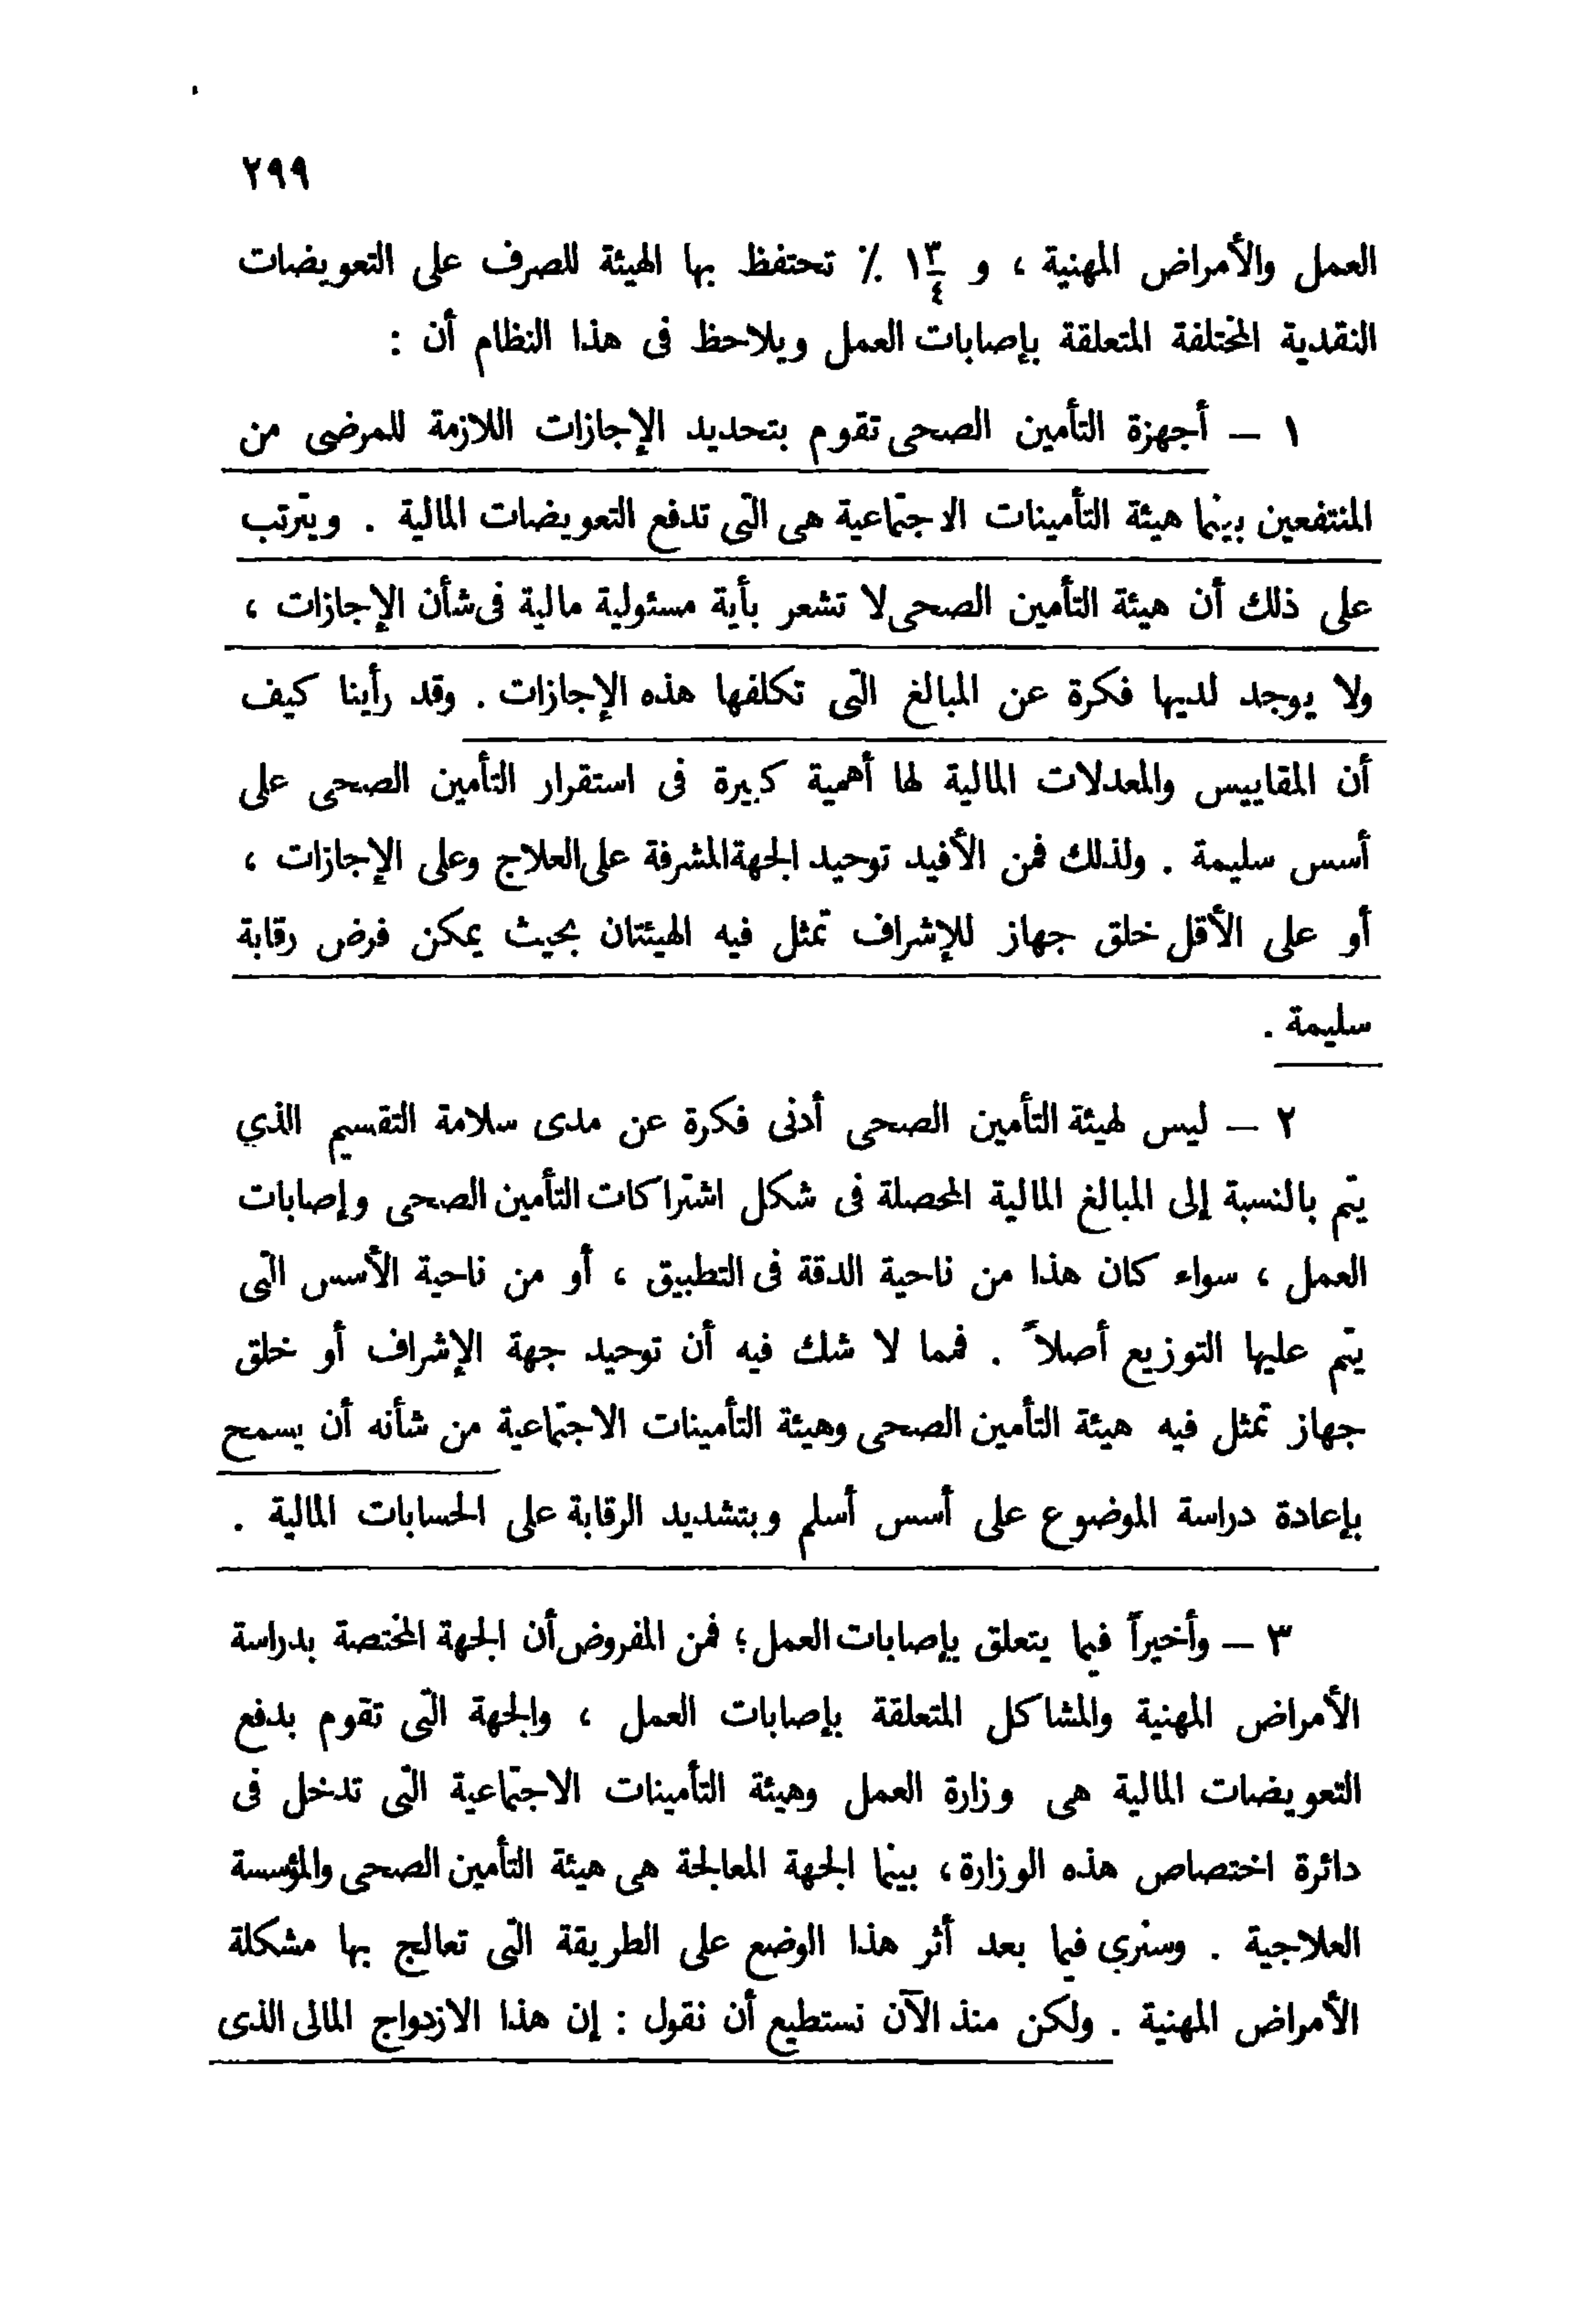 ٢٩٩
العمل والأمراض المهنية ، و ١٣/٤ ٪ تحتفظ بها الهيئة للصرف على التعويضات
النقدية المختلفة المتعلقة بإصابات العمل ويلاحظ فى هذا النظام أن :
١ – أجهزة التأمين الصحى تقوم بتحديد الإجازات اللازمة للمرضى من
المنتفعين بينما هيئة التأمينات الاجتماعية هى التى تدفع التعويضات المالية . ويترتب
على ذلك أن هيئة التأمين الصحى لا تشعر بأية مسئولية مالية فى شأن الإجازات ،
ولا يوجد لديها فكرة عن المبالغ التى تكلفها هذه الإجازات . وقد رأينا كيف
أن المقاييس والمعدلات المالية لها أهمية كبيرة فى استقرار التأمين الصحى على
أسس سليمة . ولذلك فمن الأفيد توحيد الجهة المشرفة على العلاج وعلى الإجازات ،
أو على الأقل خلق جهاز للإشراف تمثل فيه الهيئتان بحيث يمكن فرض رقابة
سليمة .
٢ – ليس لهيئة التأمين الصحى أدنى فكرة عن مدى سلامة التقسيم الذي
يتم بالنسبة إلى المبالغ المالية المحصلة فى شكل اشتراكات التأمين الصحى وإصابات
العمل ، سواء كان هذا من ناحية الدقة فى التطبيق ، أو من ناحية الأسس التى
يتم عليها التوزيع أصلاً . فمما لا شك فيه أن توحيد جهة الإشراف أو خلق
جهاز تمثل فيه هيئة التأمين الصحى وهيئة التأمينات الاجتماعية من شأنه أن يسمح
بإعادة دراسة الموضوع على أسس أسلم وبتشديد الرقابة على الحسابات المالية .
٣ – وأخيراً فيما يتعلق بإصابات العمل ؛ فمن المفروض أن الجهة المختصة بدراسة
الأمراض المهنية والمشاكل المتعلقة بإصابات العمل ، والجهة التى تقوم بدفع
التعويضات المالية هى وزارة العمل وهيئة التأمينات الاجتماعية التى تدخل فى
دائرة اختصاص هذه الوزارة ، بينما الجهة المعالجة هى هيئة التأمين الصحى والمؤسسة
العلاجية . وسنري فيما بعد أثر هذا الوضع على الطريقة التى تعالج بها مشكلة
الأمراض المهنية . ولكن منذ الآن نستطيع أن نقول : إن هذا الازدواج المالى الذى